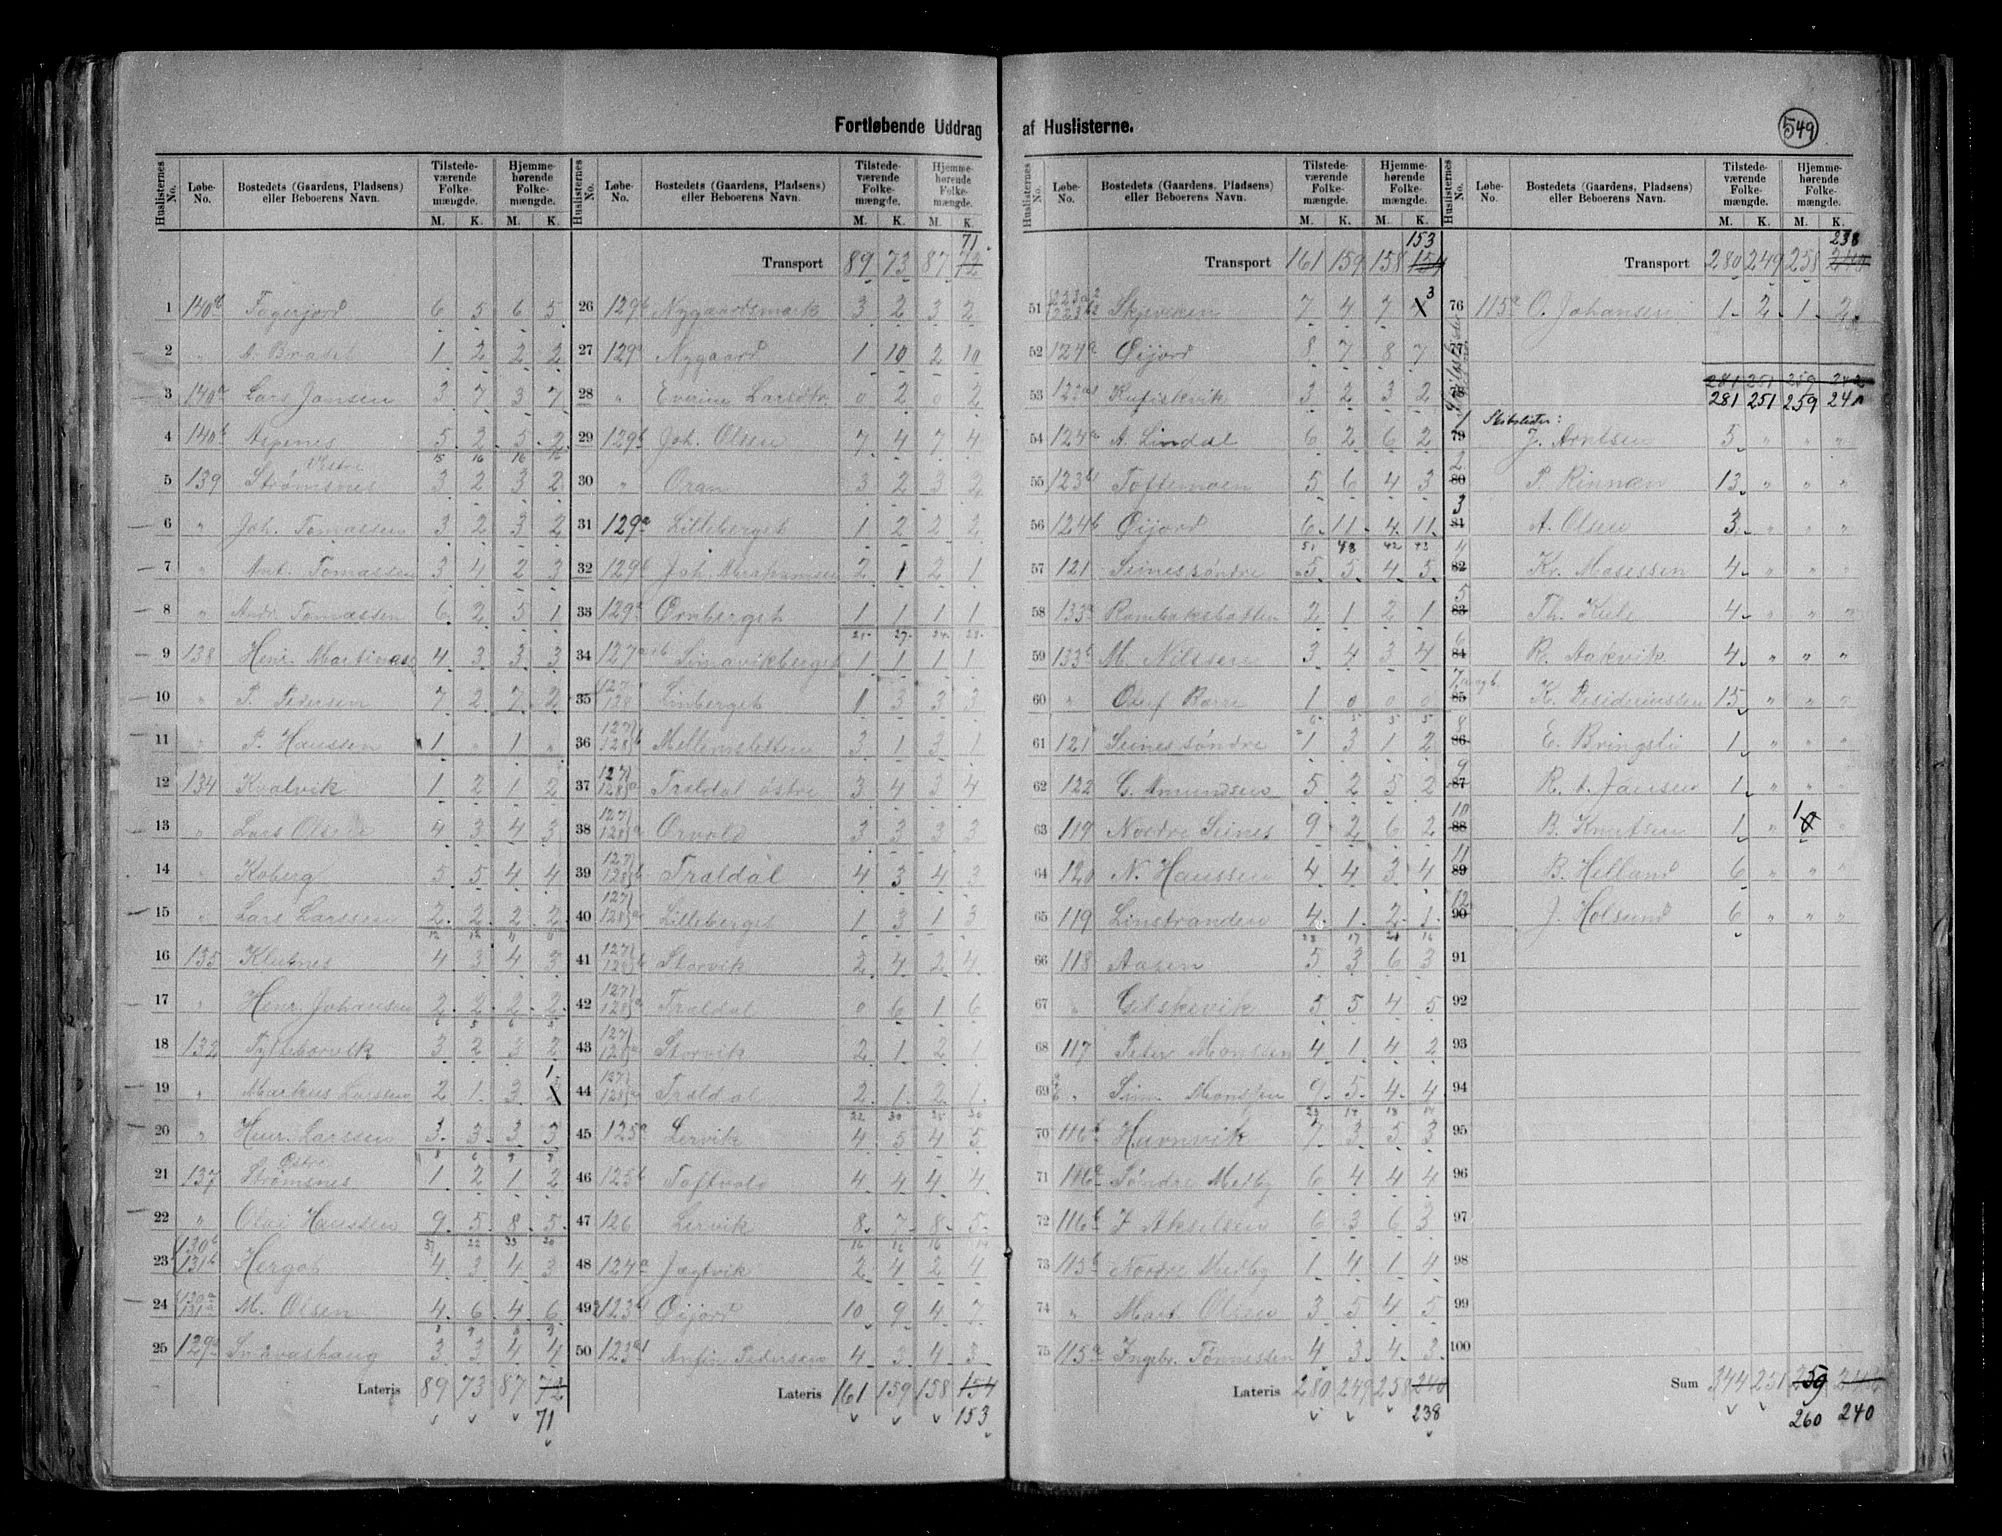 Fortløbende Uddrag af Huslisterne.
549
Huslisternes No. Løbe-No. Bostedets (Gaardens, Pladsens) eller Beboerens Navn. Tilstedeværende Folkemængde. Hjemmehørende Folkemængde.
M. K. M. K.
1 140b Fagerjord 6 5 6 5
2 " A. 1 2 2 2
3 140a Lars Jansen 3 7 3 7
4 140b Aspenes 5 2 5 2
15 16 16 16
5 139 Strømsnes Vestre 3 2 3 2
6 " Joh. Tomassen 3 2 3 2
7 " Ant. Tomassen 3 4 2 3
8 " Andr. Tomassen 6 2 5 1
9 138 Henr. 4 3 3 3
10 " P. Pedersen 7 2 7 2
11 " P. Hanssen 1 " 1 "
12 134 Kvalvik 1 2 1 2
13 " Lars Olsen 4 3 4 3
14 " Koberg 5 5 4 4
15 " Lars Larssen 2 2 2 2
16 135 Klubnes 4 3 4 3
17 " Henr. Johansen 2 2 2 2
6 5 6 5
18 132 3 2 3 2
19 " Markus Larssen 2 1 3 1
20 " Henr. Larssen 3 3 3 3
21 137 Strømsnes Østre 1 2 1 2
22 " Olai Hanssen 9 5 8 5
23 130b 131b Hergot 4 3 4 3
24 130a 131a M. Olsen 4 6 4 6
25 129a 3 3 4 4
Lateris 89 73 87 72
71
Huslisternes No. Løbe-No. Bostedets (Gaardens, Pladsens) eller Beboerens Navn. Tilstedeværende Folkemængde. Hjemmehørende Folkemængde.
M. K. M. K.
71
Transport 89 73 87 72
26 129b Nygaardsmark 3 2 3 2
27 129a Nygaard 1 10 2 10
28 " Everine Larsdtr. 0 2 0 2
29 129b Joh. Olsen 7 4 7 4
30 " Oran 3 2 3 2
31 129a Lilleberget 1 2 2 2
32 129b Joh. Abrahamsen 2 1 2 1
33 129a Ornberget 1 1 1 1
34 127 1 1 1 1
35 127 128 Linberget 1 3 3 3
36 127 128b Mellemsletten 3 1 3 1
37 127 128a Traldal østre 3 4 3 4
38 127 128a Orvold 3 3 3 3
39 127 128b Traldal 4 3 4 3
40 127 128a Lilleberget 1 3 1 3
41 127 128b Storvik 2 4 2 4
42 127 128a Traldal 0 6 1 6
43 127 128a Storvik 2 1 2 1
44 127 128a Traldal 2 1 2 1
22 30 25 30
45 125a Lervik 4 5 4 5
46 125b Toftvold 4 4 4 4
47 126 Lervik 8 7 8 5
16 16 16 14
48 124a Jægtvik 2 4 2 4
49 123b Øijord 10 9 4 7
50 123a1 Anfin Pedersen 4 3 4 3
Lateris 161 159 158 154
153
Huslisternes No. Løbe-No. Bostedets (Gaardens, Pladsens) eller Beboerens Navn. Tilstedeværende Folkemængde. Hjemmehørende Folkemængde.
M. K. M. K.
153
Transport 161 159 158 154
51 Skjeviken 7 4 7 3
52 124a Øijord 8 7 8 7
53 123a1 Kufiskvik 3 2 3 2
54 124a A. Lindal 6 2 6 2
55 123b Toftemoen 5 6 4 3
56 124b Øijord 6 11 4 11
51 48 42 43
57 121 Seines søndre 5 5 4 5
58 133a Rombaksbotten 2 1 2 1
59 133b M. Nilssen 3 4 3 4
60 " Oluf 1 0 0 0
6 5 5 5
61 121 Seines søndre 1 3 1 2
62 122 C. Amundsen 5 2 5 2
63 119 Nordre Seines 9 2 6 2
64 120 N. Hanssen 4 4 3 4
65 119 Linstranden 4 1 2 1
66 118 Aasen 5 3 6 3
67 " Gilskevik 5 5 4 5
68 117 Peter Monssen 4 1 4 2
69 " Sim. Monssen 9 5 4 4
23 14 18 14
70 116b Havnvik 7 3 5 3
71 116a Søndre Medby 6 4 4 4
72 116b J. Akselsen 6 3 6 3
73 115b Nordre Medby 1 4 1 4
74 " Mart. Olsen 3 5 4 5
75 115a Ingebr. Tønnessen 4 3 4 3
Lateris 280 249 258 240
238
Huslisternes No. Løbe-No. Bostedets (Gaardens, Pladsens) eller Beboerens Navn. Tilstedeværende Folkemængde. Hjemmehørende Folkemængde.
M. K. M. K.
238
Transport 280 249 258 240
76 115a O. Johansen 1 2 1 2
77
78 281 251 259 242
281 251 259 241
Skibslister:
79 1 J. Arntsen 5 " " "
80 2 P. Rinnan 13 " " "
81 3 A. Olsen 3 " " "
82 4 Kr. Mosessen 4 " " "
83 5 Th. Kiil 4 " " "
84 6 R. Aakvik 4 " " "
85 7 K. 15 " " "
86 8 E. Bringsli 1 " " "
87 9 R. A. Jansen 1 " " "
88 10 B. Knutsen 1 " 1 "
89 11 B. Helland 6 " " "
90 12 J. Holsund 6 " " "
91
92
93
94
95
96
97
98
99
100
Sum 344 251 259 242
260 240